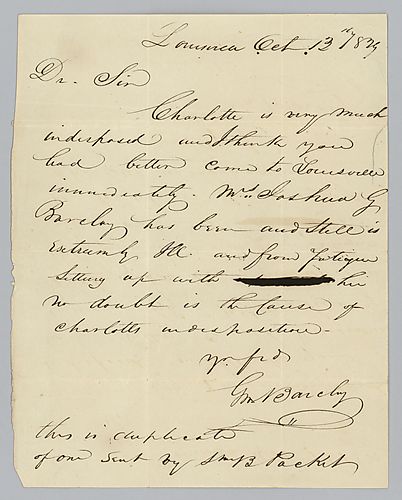 Louisvea Oct. 13th 1829
Dr. Sir
Charlotte is very much
indisposed and I think you
had better come to Louisville
immediately. Mrs. Joshua G
Barclay has been and still is
extremely Ill. and from fatigue
Setting up with her
no doubt is the Cause of
Charlotts indisposition -
yr. frd
Barclay
this is duplicate
of one Sent by Packet